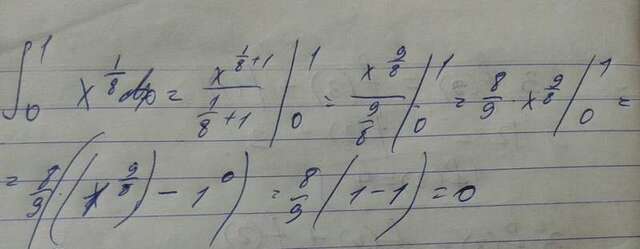 ∫₀¹ x^(1/8) dx = x^(1/8+1)/(1/8+1) |₀¹ = x^(9/8)/(9/8) |₀¹ = 8/9 · x^(9/8) |₀¹ =
= 8/9 · ((1^(9/8)) − 1⁰) = 8/9 (1−1) = 0